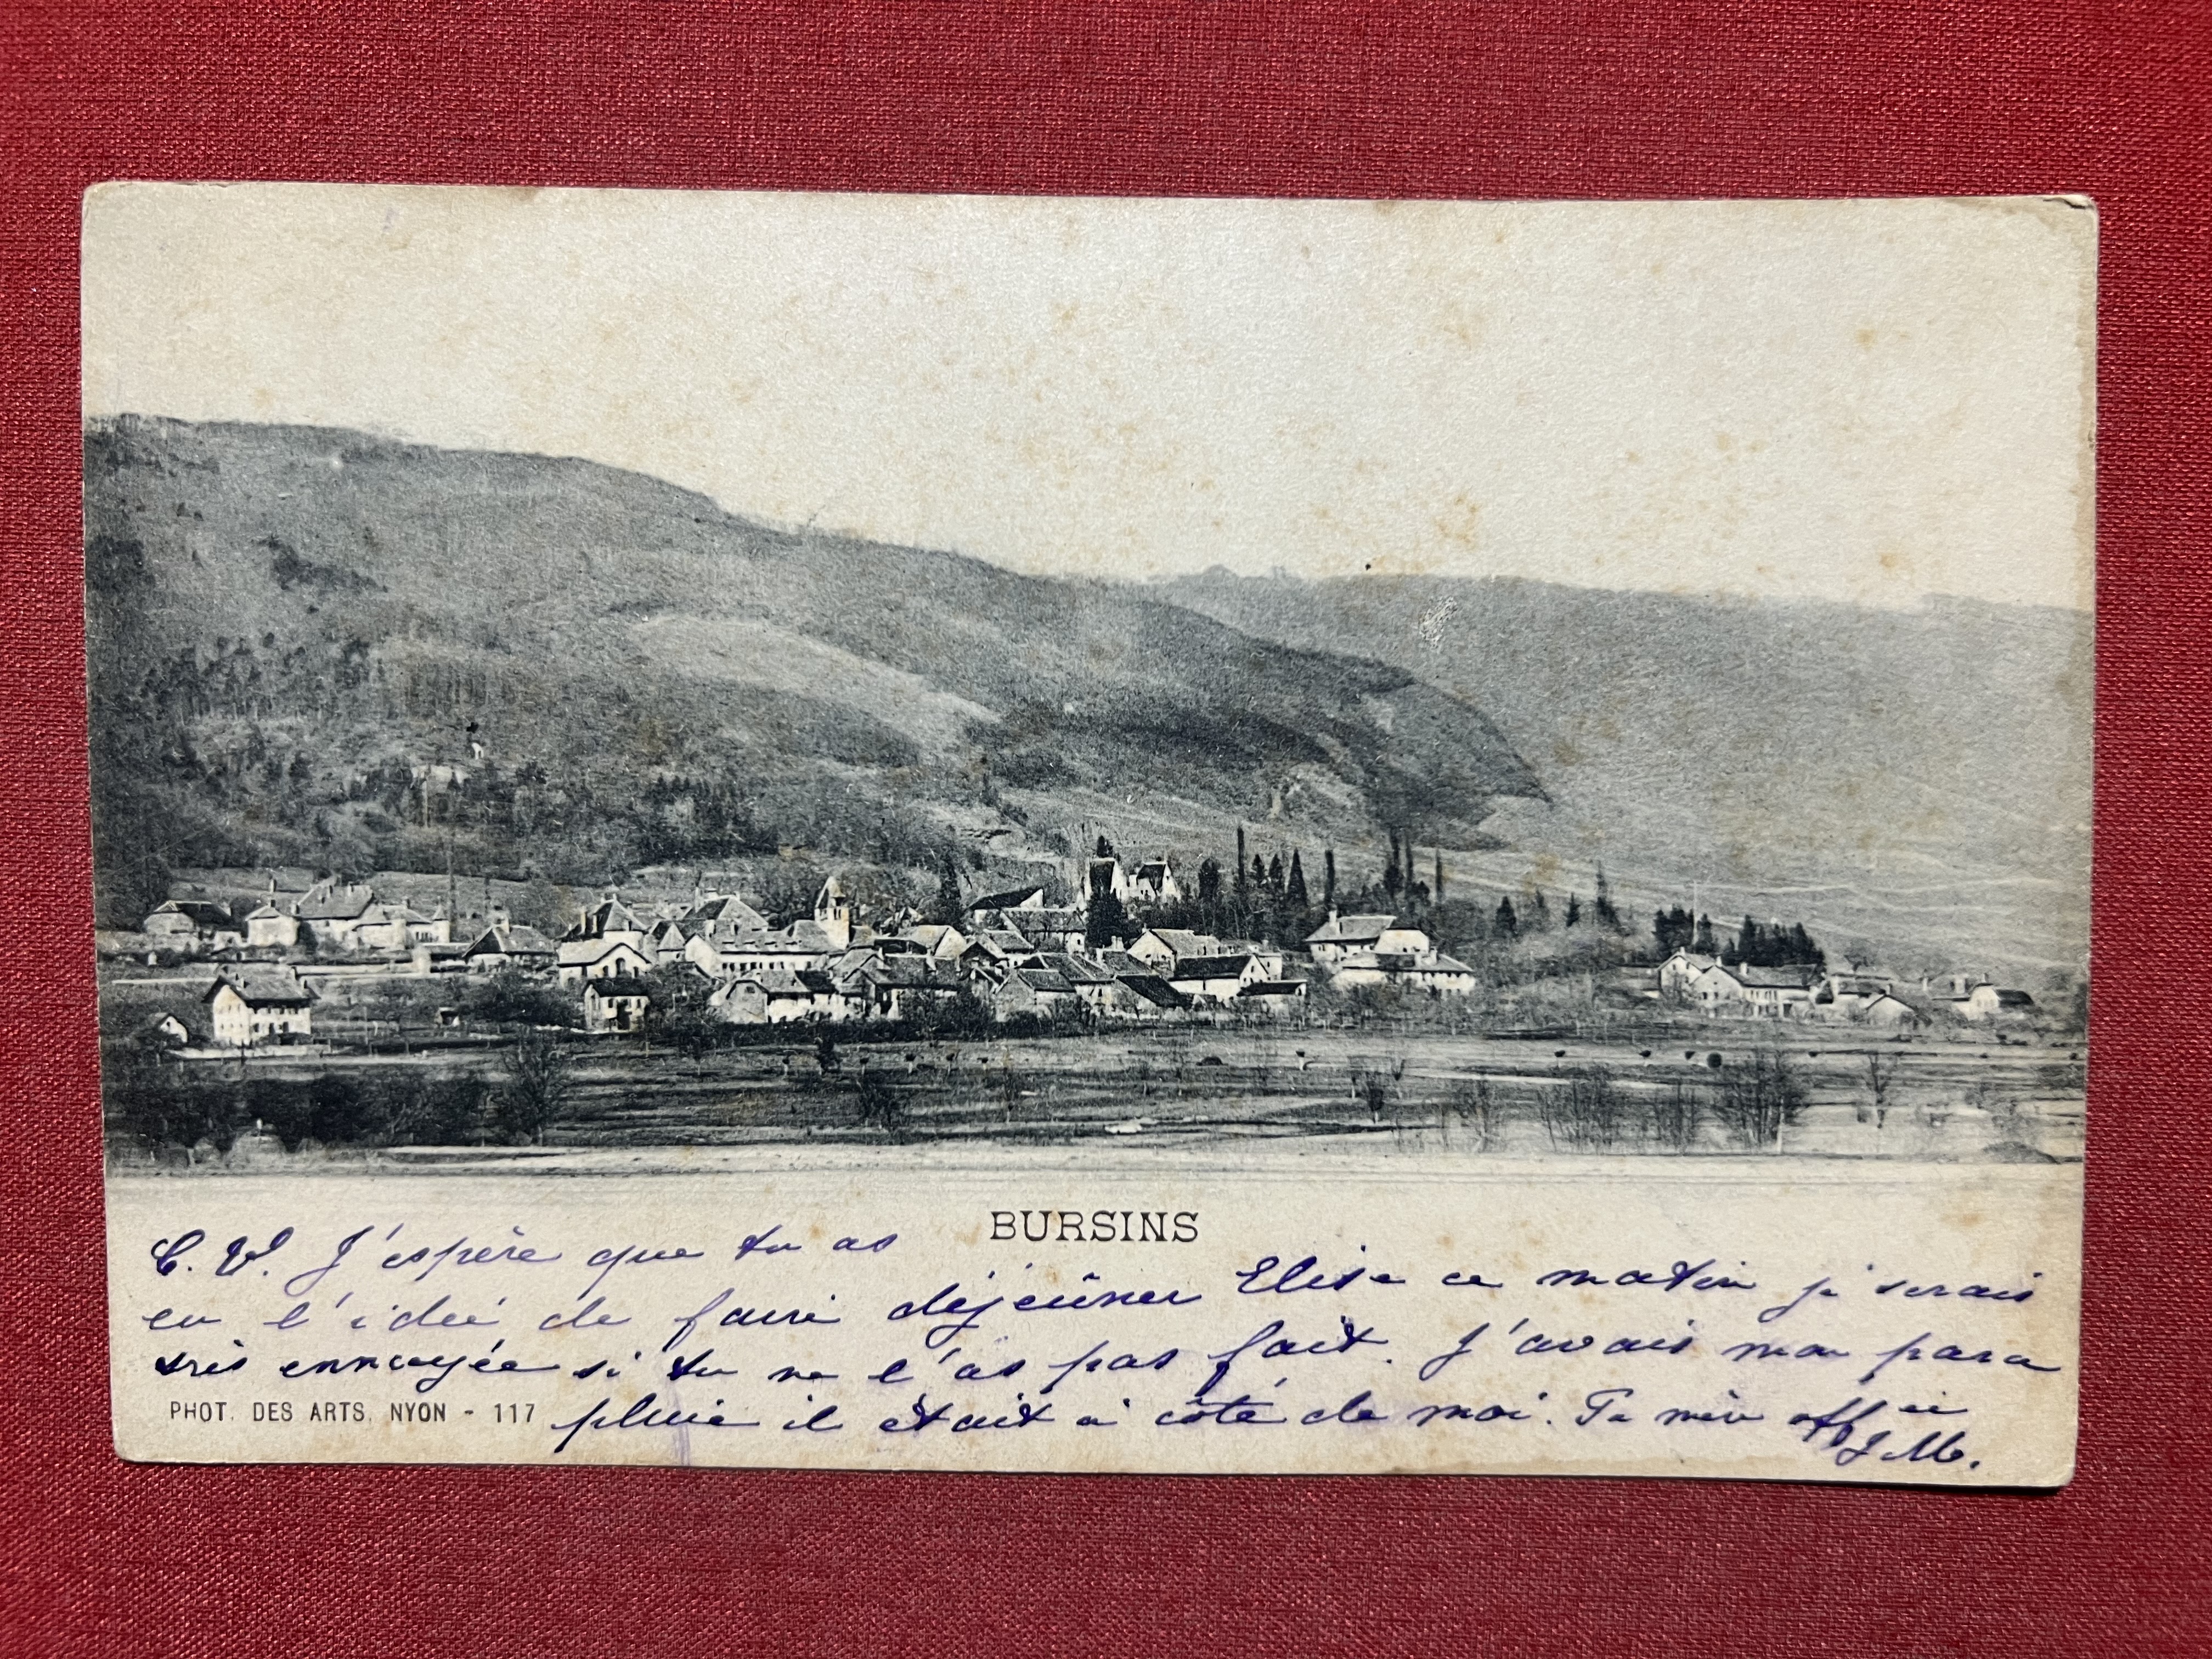 BURSINS
C. V. J'espère que tu as
eu l'idée de faire déjeûner Elise ce matin je serais
très ennuyée si tu ne l'as pas fait. J'avais mon para
pluie il était à côté de moi. Ta mère aff ée
J.M.
PHOT. DES ARTS, NYON - 117